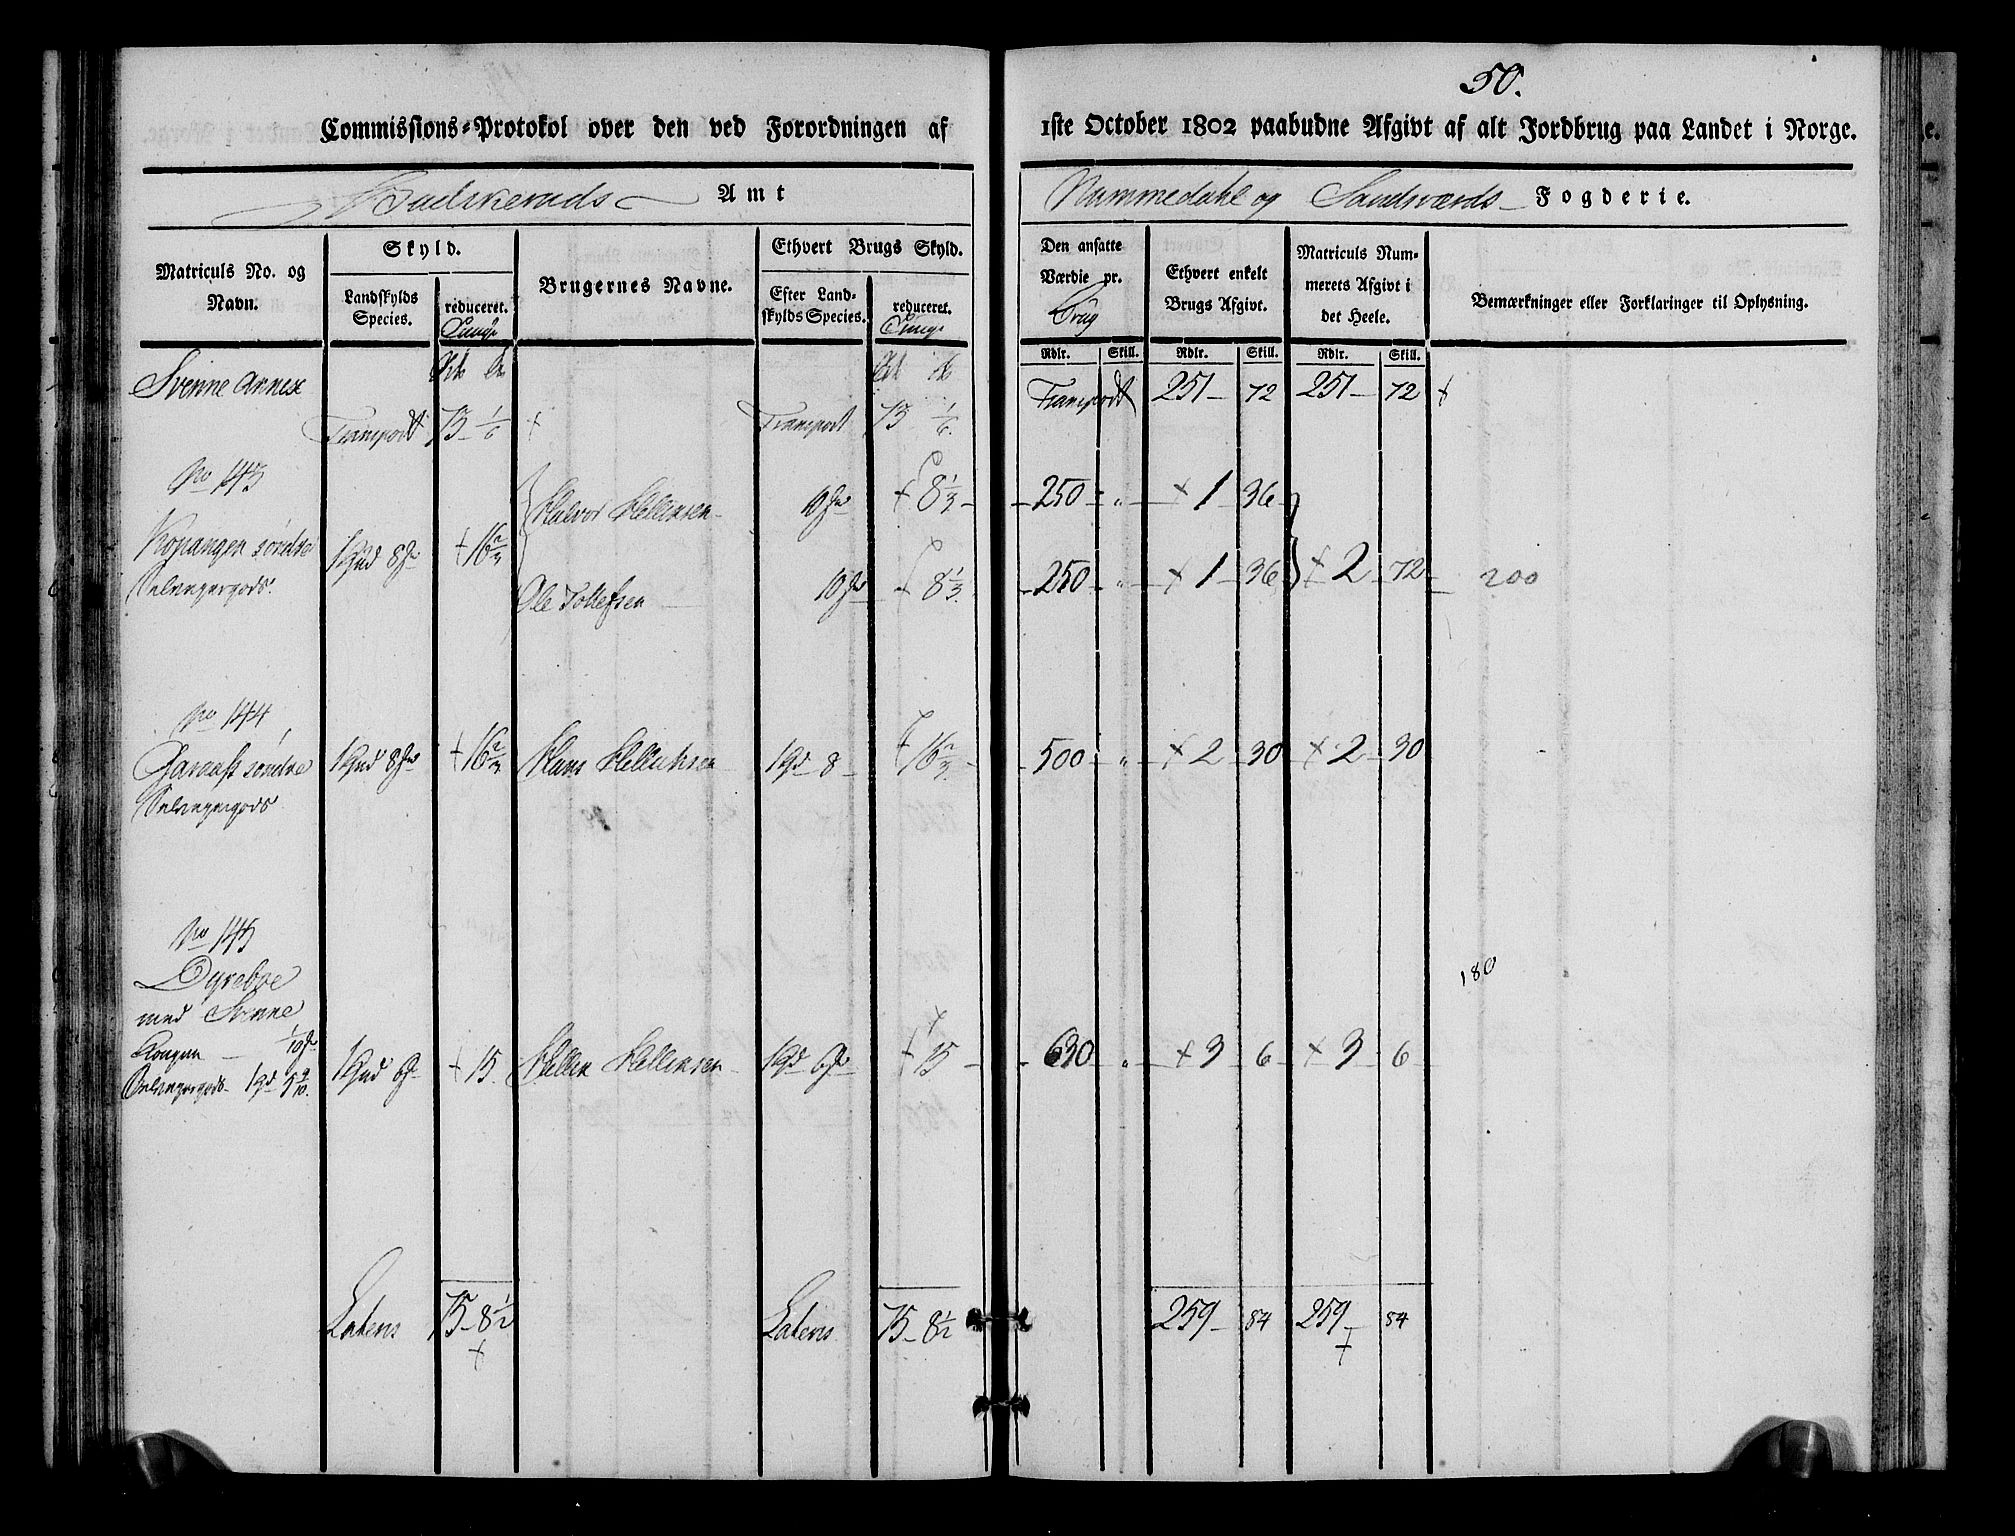 50.
Commissions-Protokol over den ved Forordningen af 1ste October 1802 paabudne Afgivt af alt Jordbrug paa Landet i Norge.
Buskeruds Amt
Nummedahl og Sandsværds Fogderie.
Matriculs No. og Navn.
Skyld.
Landskylds Species.
reduceret.
Tunge
Brugernes Navne.
Ethvert Brugs Skyld.
Efter Landskylds Species.
reduceret.
Tunge
Den ansatte Værdie pr. Brug
Ethvert enkelt Brugs Afgivt.
Matriculs Nummerets Afgivt i det Heele.
Bemærkninger eller Forklaringer til Oplysning.
Rdlr. Skill. Rdlr. Skill. Rdlr. Skill.
Svenne Annex
Transport 251 72 251 72 +
Transport 73 1/6 + Transport 73 1/6.
No 143
Halvor Hellensen 10 + 8 1/3 250 " + 1 36
Kopangen søndre + 16 2/3
Selveyergods.
Ole Tollefsen 10 + 8 1/3 250 " + 1 36 + 2 72 200
No 144
søndre + 16 2/3 + 16 2/3 500 " + 2 30 + 2 30
Selveyergods
No 145
Dyreboe 180
med Svenne
Kongen 1/10
Selveyergods 5 9/10. + 15 Hellen Hellensen + 15 630 " + 3 6 + 3 6
Latens 75 8 1/2 Latens 75 8 1/2 259 84 259 84
+ +